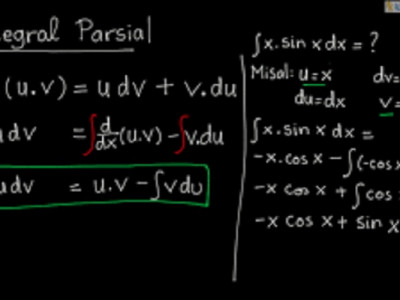 egral Parsial
(u.v) = u dv + v.du
u dv = ∫ d/dx (u.v) − ∫v.du
udv = u.v − ∫vdu
∫x.sin x dx = ?
Misal: u = x dv=
du=dx v=
∫x.sin x dx =
-x.cos x − ∫(-cos x
-x cos x + ∫cos
-x cos x + sin x